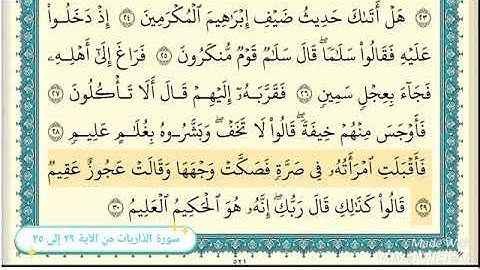 ٢٣ هَلْ أَتَىٰكَ حَدِيثُ ضَيْفِ إِبْرَٰهِيمَ ٱلْمُكْرَمِينَ ٢٤ إِذْ دَخَلُوا۟
عَلَيْهِ فَقَالُوا۟ سَلَٰمًا ۖ قَالَ سَلَٰمٌ قَوْمٌ مُّنكَرُونَ ٢٥ فَرَاغَ إِلَىٰٓ أَهْلِهِۦ
فَجَآءَ بِعِجْلٍ سَمِينٍ ٢٦ فَقَرَّبَهُۥٓ إِلَيْهِمْ قَالَ أَلَا تَأْكُلُونَ ٢٧
فَأَوْجَسَ مِنْهُمْ خِيفَةً ۖ قَالُوا۟ لَا تَخَفْ ۖ وَبَشَّرُوهُ بِغُلَٰمٍ عَلِيمٍ ٢٨
فَأَقْبَلَتِ ٱمْرَأَتُهُۥ فِى صَرَّةٍ فَصَكَّتْ وَجْهَهَا وَقَالَتْ عَجُوزٌ عَقِيمٌ
٢٩ قَالُوا۟ كَذَٰلِكِ قَالَ رَبُّكِ ۖ إِنَّهُۥ هُوَ ٱلْحَكِيمُ ٱلْعَلِيمُ ٣٠
سورة الذاريات من الآية ٢٩ إلى ٣٥
٥٢١
Made W